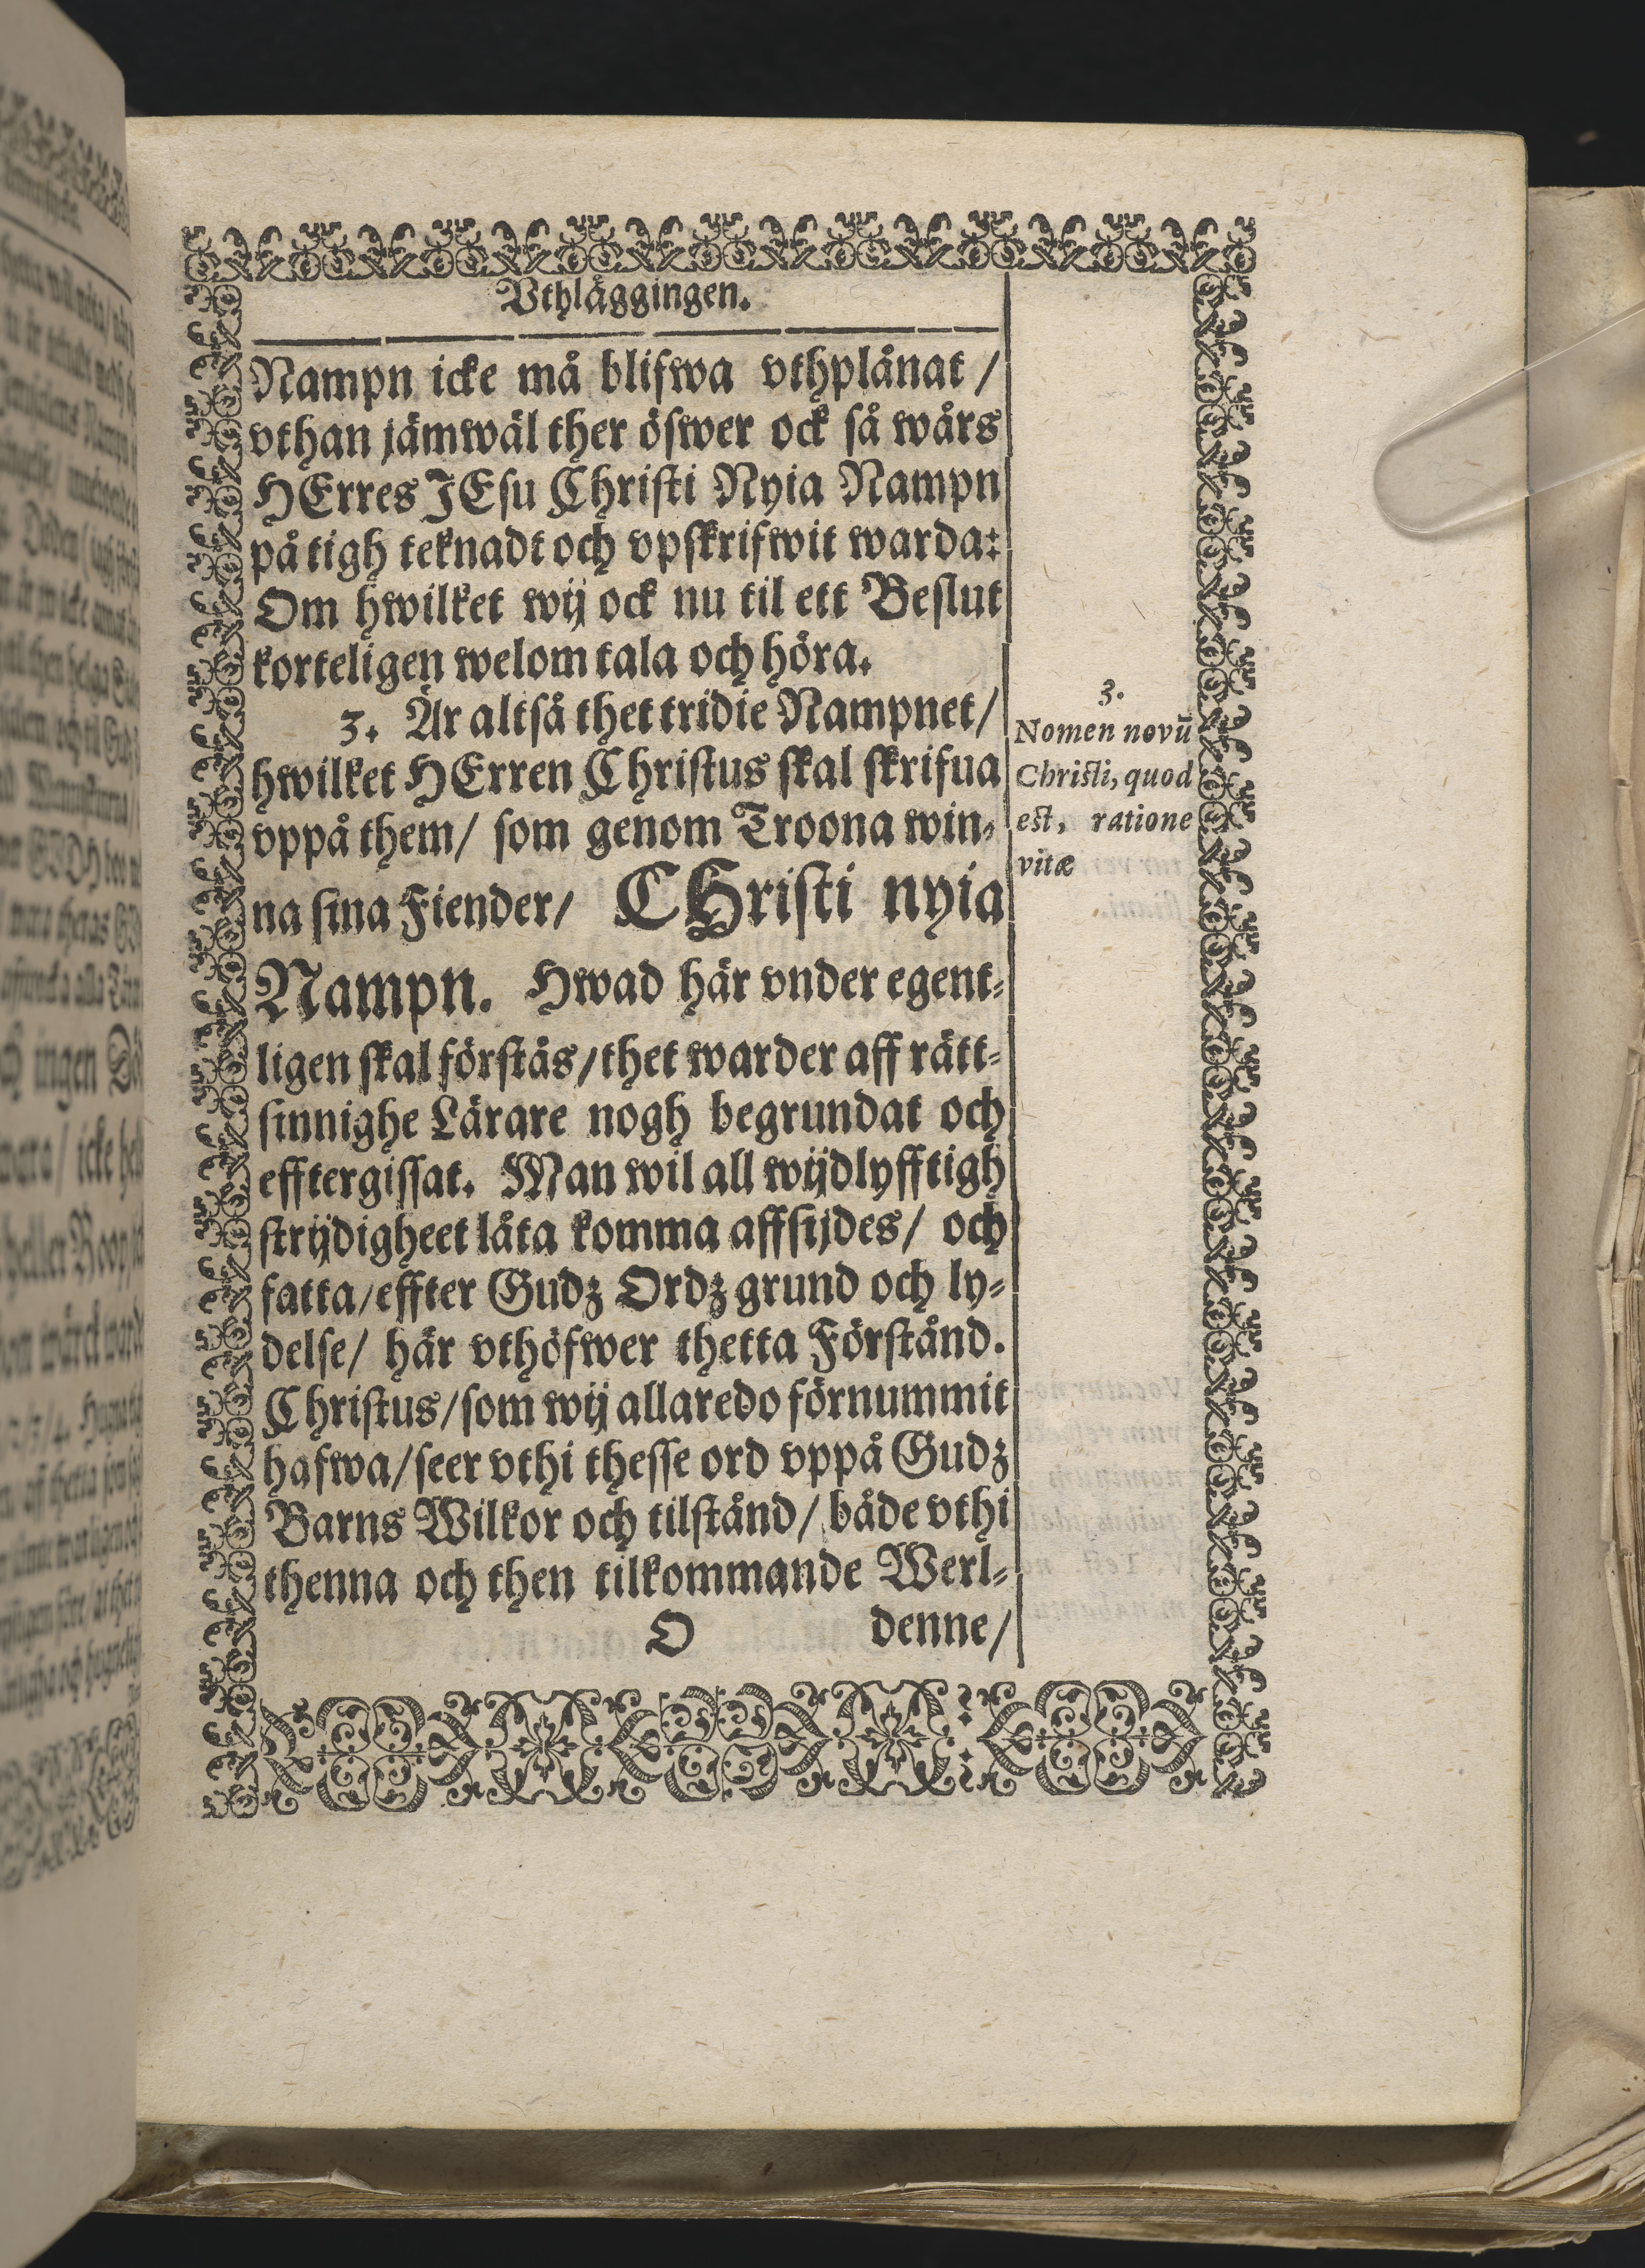 Vthläggingen.
Nampn icke må blifwa vthplånat /
vthan jämwäl ther öfwer ock så wårs
HErres JEsu Christi Nyia Nampn
på tigh teknadt och vpskrifwit warda:
Om hwilket wij ock nu til ett Beslut
korteligen welom tala och höra.
3. Är altså thet tridie Nampnet/
hwilket HErren Christus skal skrifua
vppå them/ som genom Troona win-
na sina Fiender/ CHristi nyia
Nampn. Hwad här vnder egent-
ligen skal förstås/thet warder aff rätt-
sinnighe Lärare nogh begrundat och
efftergissat. Man wil all wijdlyfftigh
strijdigheet låta komma affsijdes/ och
fatta/effter Gudz Ordz grund och ly-
delse/ här vthöfwer thetta Förstånd.
Christus/som wij allaredo förnummit
hafwa/seer vthi thesse ord vppå Gudz
Barns Wilkor och tilstånd/ både vthi
thenna och then tilkommande Werl-
O denne/
3.
Nomen novū
Christi, quod
est, ratione
vitæ